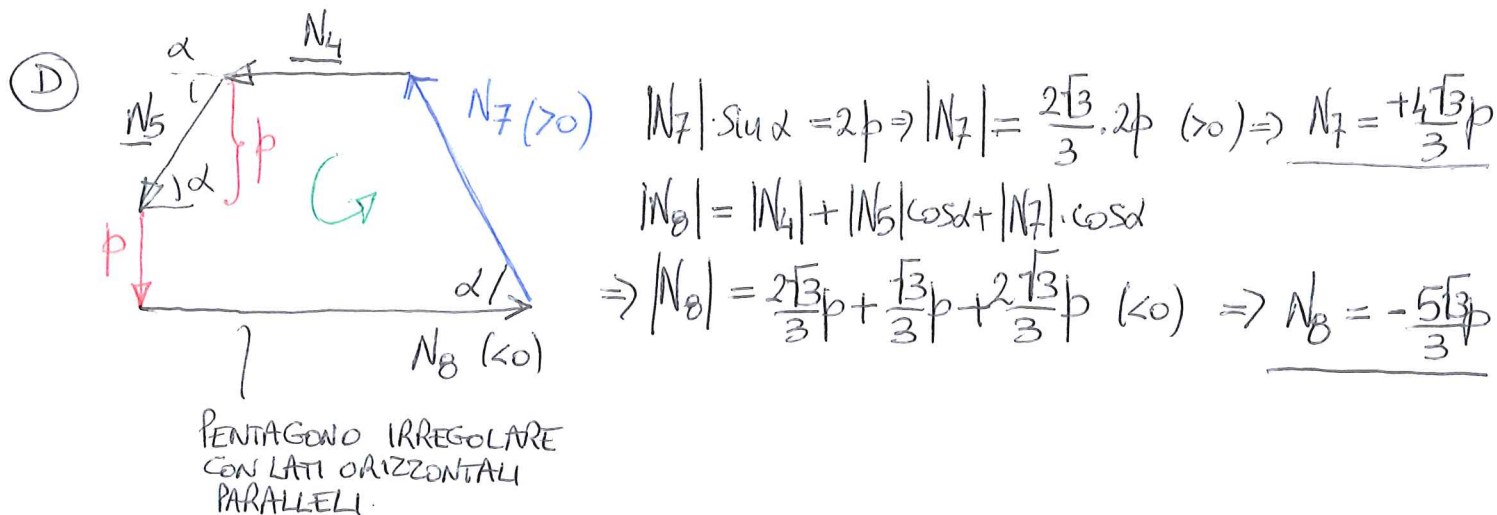 D
α
N4
N5
α
p
p
N7 (>0)
α
N8 (<0)
PENTAGONO IRREGOLARE
CON LATI ORIZZONTALI
PARALLELI.
|N7|·sin α = 2p ⇒ |N7| = 2√3/3 · 2p (>0) ⇒ N7 = +4√3/3 p
|N8| = |N4| + |N5|cosα + |N7|·cosα
⇒ |N8| = 2√3/3 p + √3/3 p + 2√3/3 p (<0) ⇒ N8 = -5√3/3 p